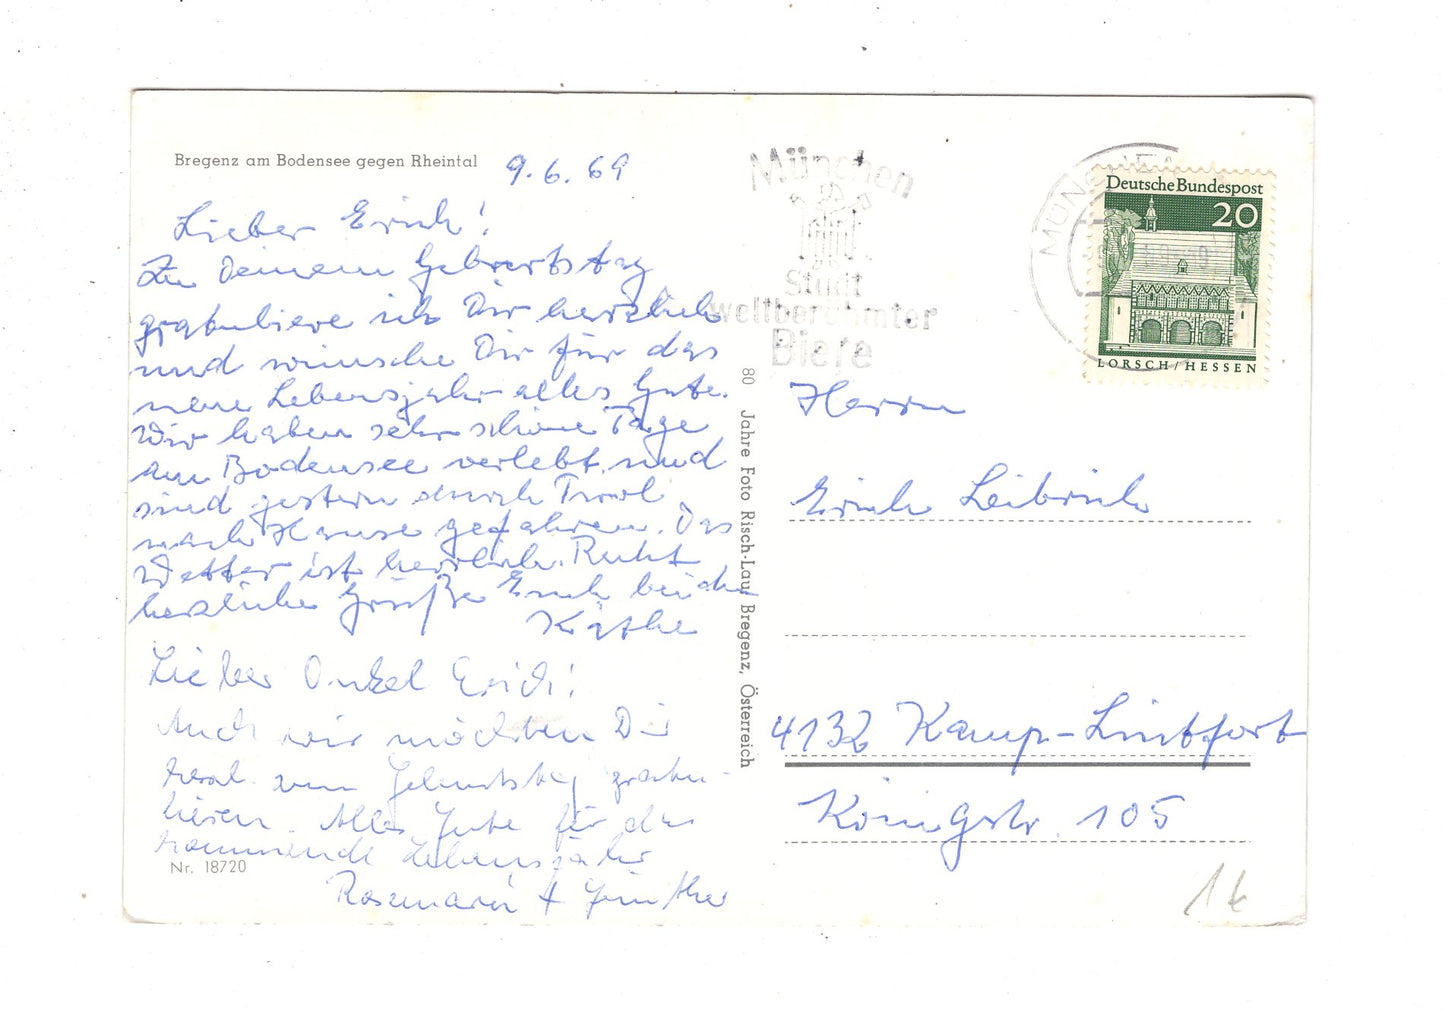 Bregenz am Bodensee gegen Rheintal
9.6.69
Lieber Erich!
Zu Deinem Geburtstag
gratuliere ich Dir herzlich
und wünsche Dir für das
neue Lebensjahr alles Gute.
Wir haben sehr schöne Tage
am Bodensee verlebt und
sind gestern durch Tirol
nach Hause gefahren. Das
Wetter ist herrlich. Recht
herzliche Grüße Euch beiden
Käthe
Lieber Onkel Erich!
Auch wir möchten Dir
herzl. zum Geburtstag gratu-
lieren. Alles Gute für das
kommende Lebensjahr
Rosemarie + Günther
Nr. 18720
80 Jahre Foto Risch-Lau, Bregenz, Österreich
München
Stadt
weltberühmter
Biere
MÜNCHEN
Deutsche Bundespost
20
LORSCH/HESSEN
Herrn
Erich Leibrich
4132 Kamp-Lintfort
Königstr. 105